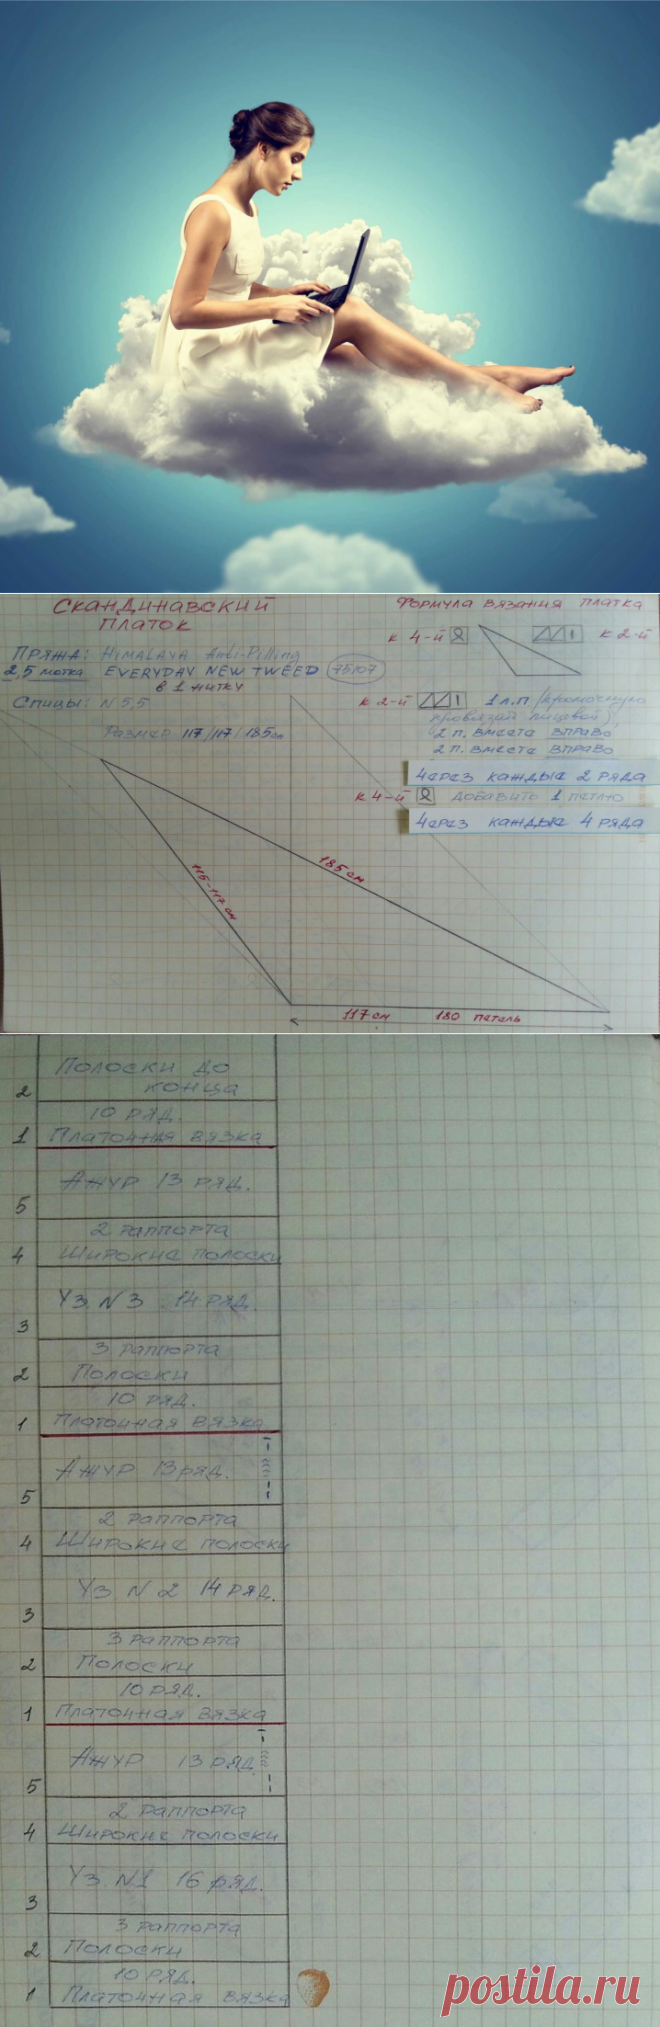 Скандинавский
платок
Формула вязания платка
к 4-й
к 2-й
Пряжа: Himalaya Anti-Pilling
2,5 мотка EVERYDAY NEW TWEED 75107
в 1 нитку
Спицы: N 5,5
Размер 117/117/185см
к 2-й 1 л.п. (кромочную
провязать лицевой),
2 п. вместе вправо
2 п. вместе вправо
через каждые 2 ряда
к 4-й добавить 1 петлю
через каждые 4 ряда
185 см
115-117 см
117 см 180 петель
Полоски до
2 конца
10 ряд.
1 Платочная вязка
Ажур 13 ряд.
5
2 раппорта
4 Широкие полоски
Уз. N 3 14 ряд.
3
3 раппорта
2 Полоски
10 ряд.
1 Платочная вязка
Ажур 13 ряд.
5
2 раппорта
4 Широкие полоски
Уз N 2 14 ряд.
3
3 раппорта
2 Полоски
10 ряд.
1 Платочная вязка
Ажур 13 ряд.
5
2 раппорта
4 Широкие полоски
Уз. N1 16 ряд.
3
3 раппорта
2 Полоски
10 ряд.
1 Платочная вязка
postila.ru